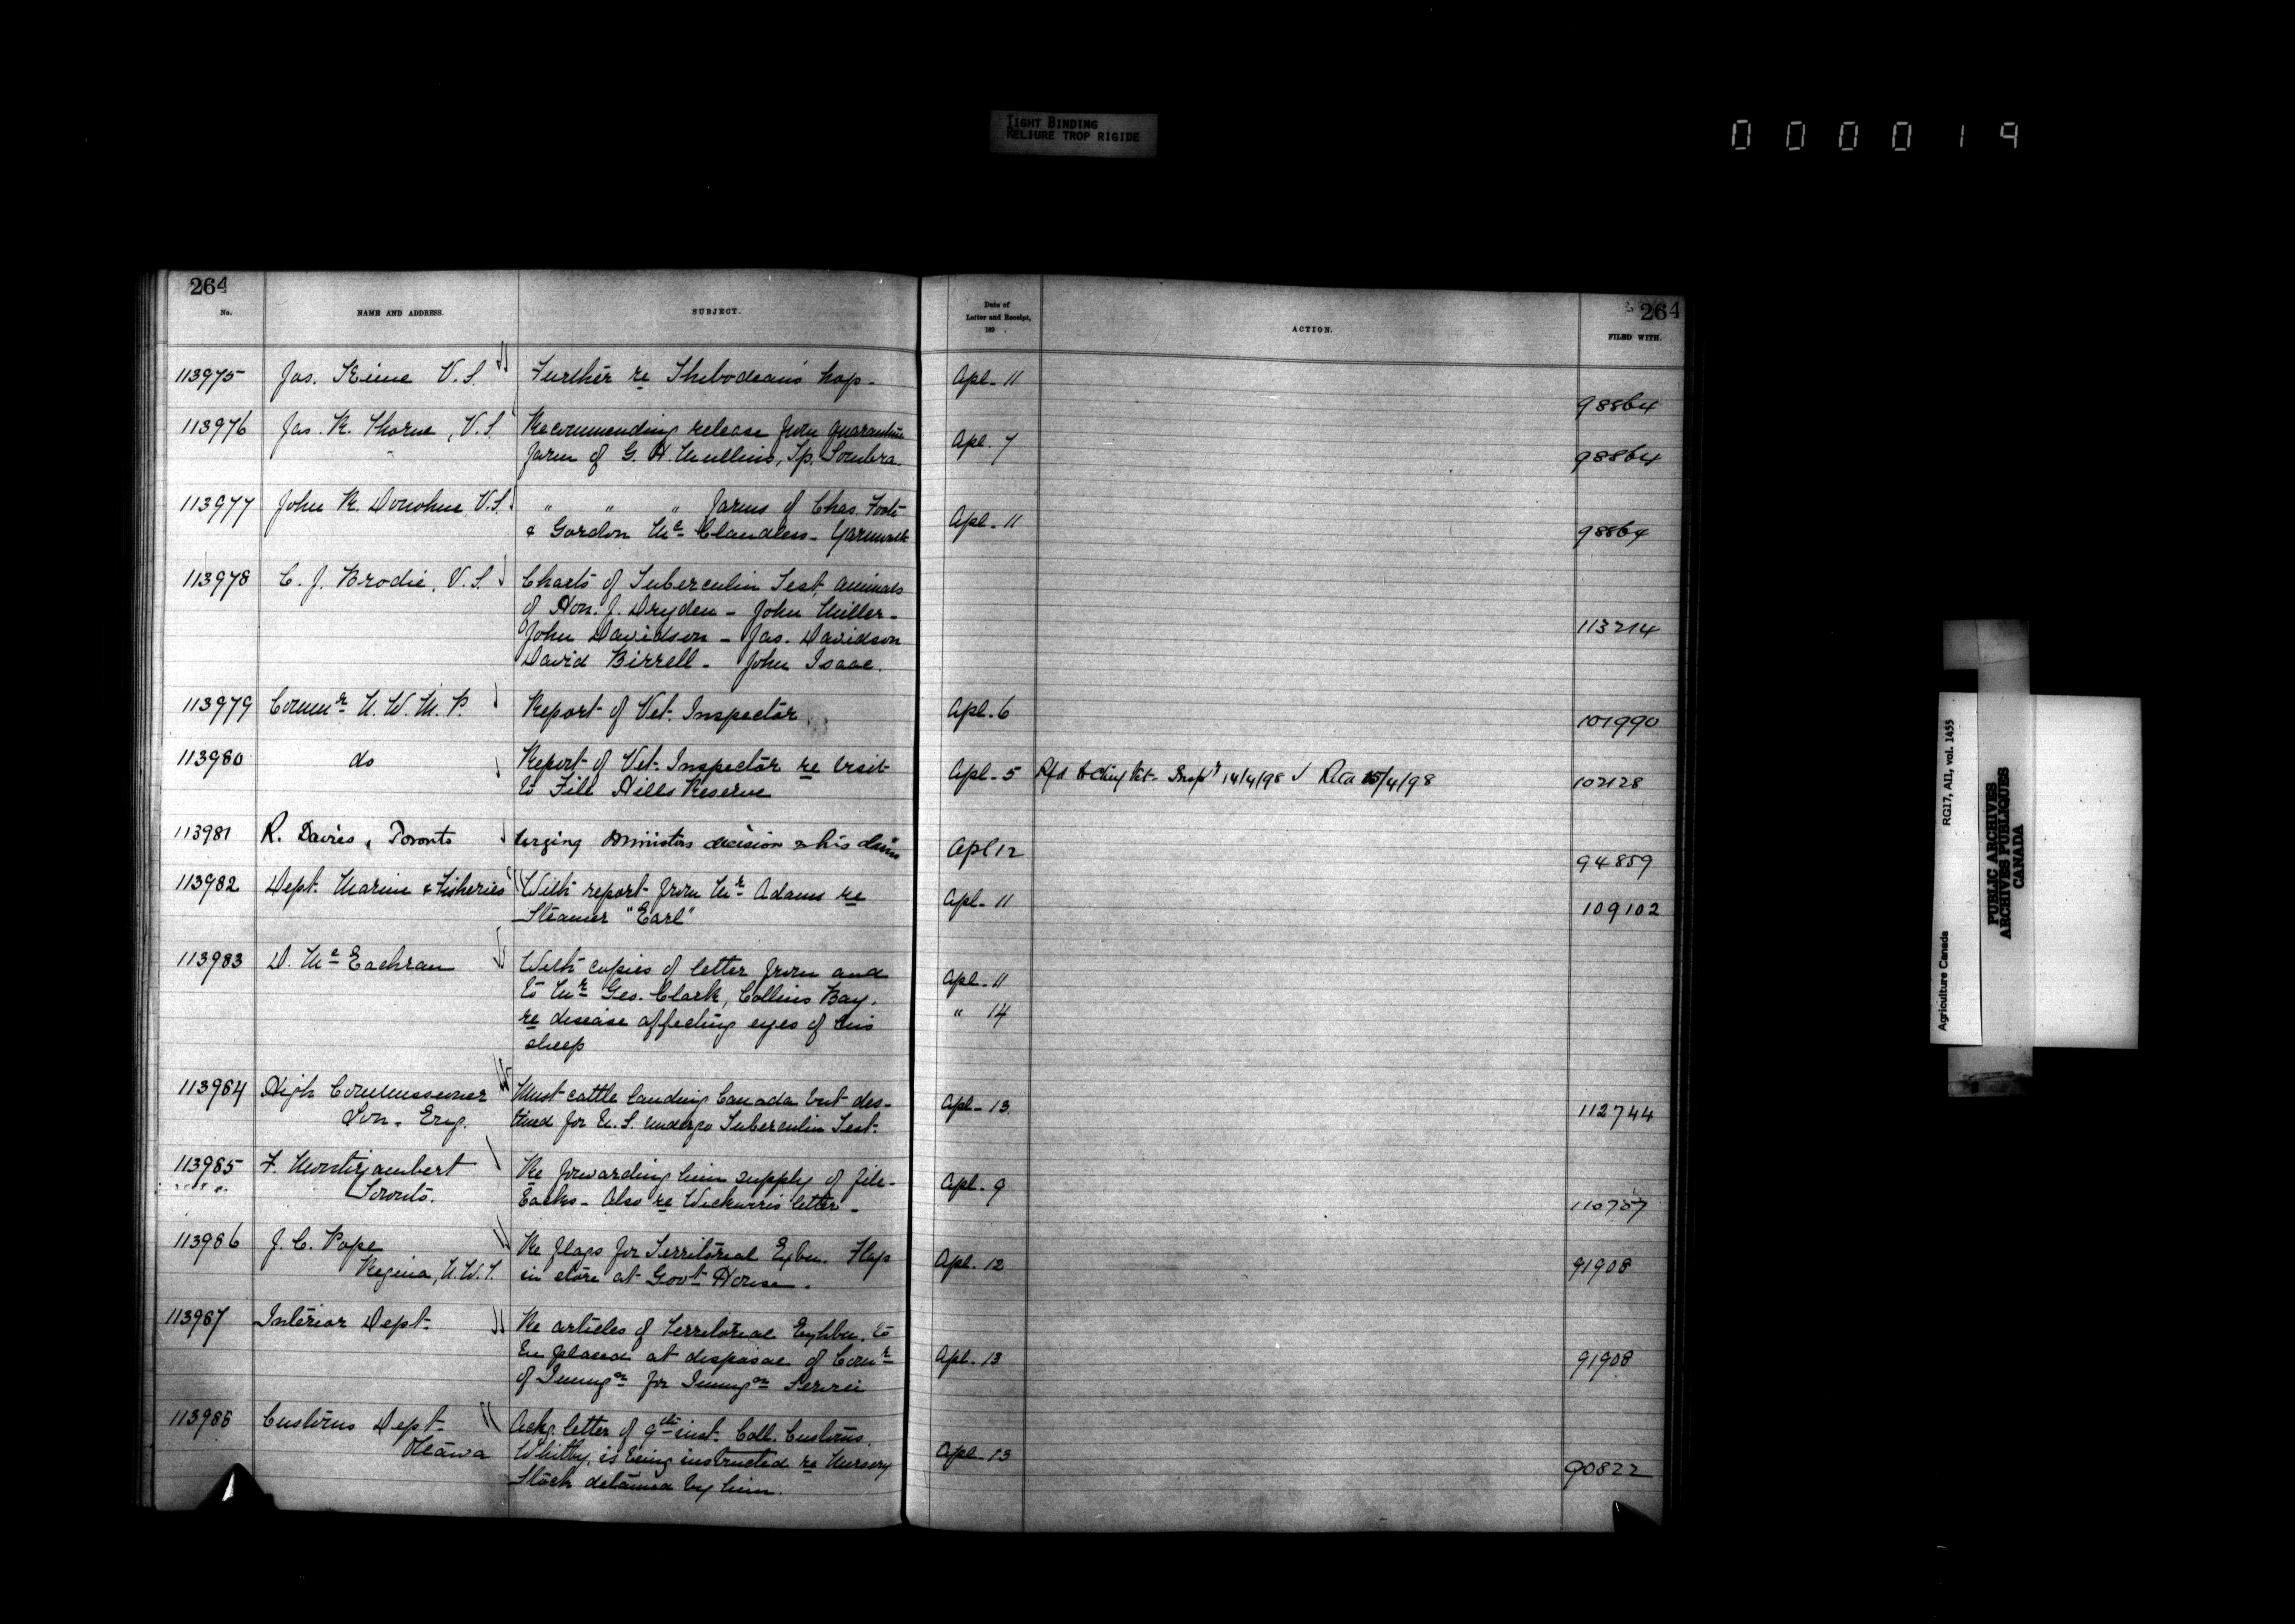 TIGHT BINDING
RELIURE TROP RIGIDE
000019
264
No.
NAME AND ADDRESS.
SUBJECT.
Date of
Letter and Receipt,
189 .
ACTION.
264
FILED WITH.
113975 Jas. Keine V.S. Further re Thibodeau's hog- Apl-11 98864
113976 Jas. R. Thorne, V.S. Recommending release from quarantine Apl-7
farm of G. H. Mullins, Tp. Sombra. 98864
113977 John R. Donohue V.S. " " " farms of Chas. Foote Apl-11
& Gordon Mc Candless- Yarmouth 98864
113978 C. J. Brodie, V.S. Charts of Tuberculin Test, animals
of Hon. J. Dryden - John Miller-
John Davidson - Jas. Davidson 113214
David Birrell - John Isaac.
113979 Commr N. W. M. P. Report of Vet. Inspector Apl-6 101990
113980 do Report of Vet. Inspector re visit Apl-5 Rfd to Chief Vet- Inspr 14/4/98 Rtd 15/4/98 102128
to File Hills Reserve
113981 R. Davies, Toronto Urging Ministers decision re his claim Apl 12 94859
113982 Dept. Marine & Fisheries With report from Mr Adams re Apl-11
Steamer "Earl" 109102
113983 D. Mc Eachran With copies of letter from and Apl-11
to Mr Geo. Clark, Collins Bay. " 14
re disease affecting eyes of his
sheep
113984 High Commissioner Must cattle landing Canada but des- Apl-13. 112744
Lon. Eng. tined for U.S. undergo Tuberculin Test.
113985 F. Montizambert Re forwarding him supply of file- Apl-9
Toronto. backs- Also re Wickwire's letter- 110757
113986 J. C. Pope Re flags for Territorial Exbn. Flags Apl-12
Regina, N.W.T. in store at Govt House. 91908
113987 Interior Dept. Re articles of Territorial Exhbn. to
be placed at disposal of Comr Apl-13 91908
of Immign for Immign Service
113988 Customs Dept. Ackg. letter of 9th inst. Coll. Customs.
Ottawa Whitby, is being instructed re Nursery Apl-13 90822
Stock detained by him.
Agriculture Canada RG17, AII, vol. 1455
PUBLIC ARCHIVES
ARCHIVES PUBLIQUES
CANADA